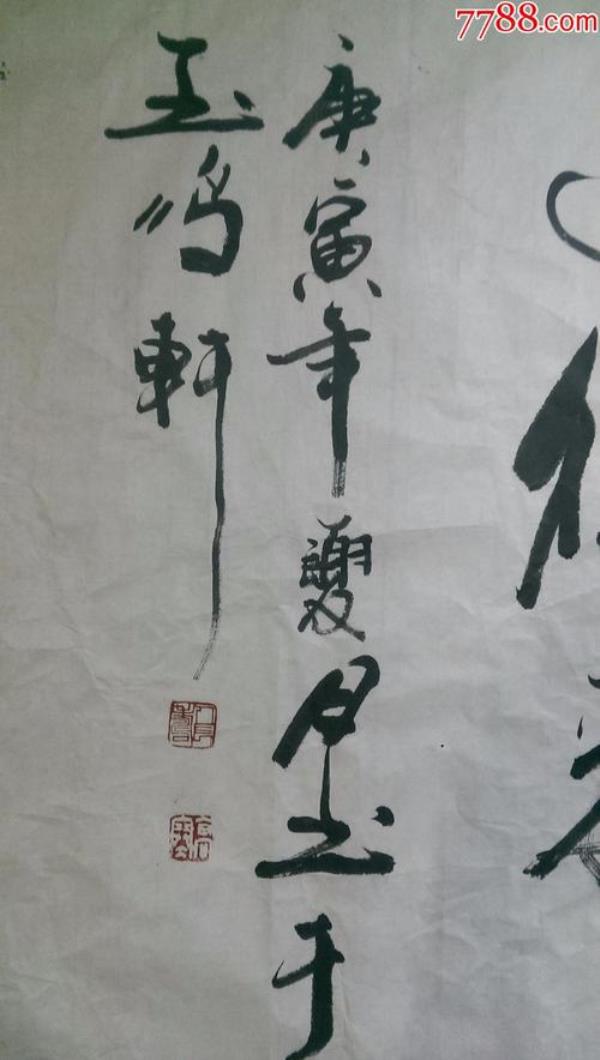 7788.com
庚寅年夏月书于
玉鸣軒